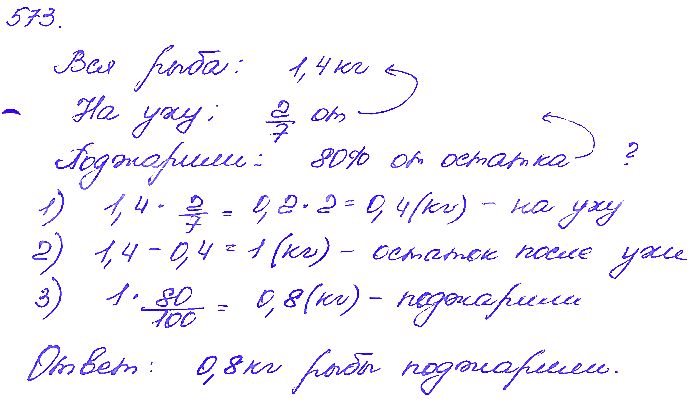 573.
Вся рыба: 1,4 кг
На уху: 2/7 от
Поджарили: 80% от остатка ?
1) 1,4 · 2/7 = 0,2 · 2 = 0,4 (кг) - на уху
2) 1,4 - 0,4 = 1 (кг) - остаток после ухи
3) 1 · 80/100 = 0,8 (кг) - поджарили
Ответ: 0,8 кг рыбы поджарили.